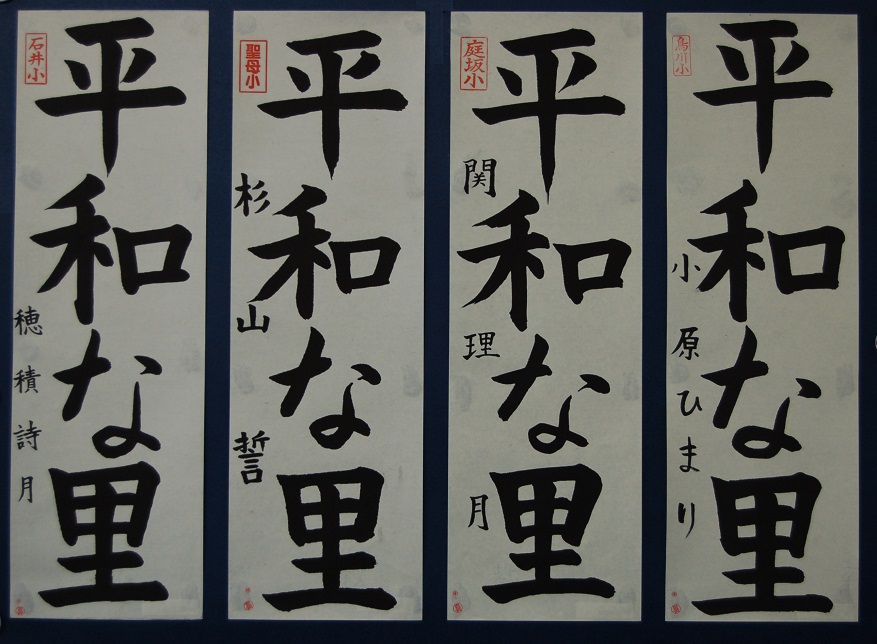 石井小
平和な里
穂積詩月
聖母小
平和な里
杉山誓
庭坂小
平和な里
関理月
鳥川小
平和な里
小原ひまり